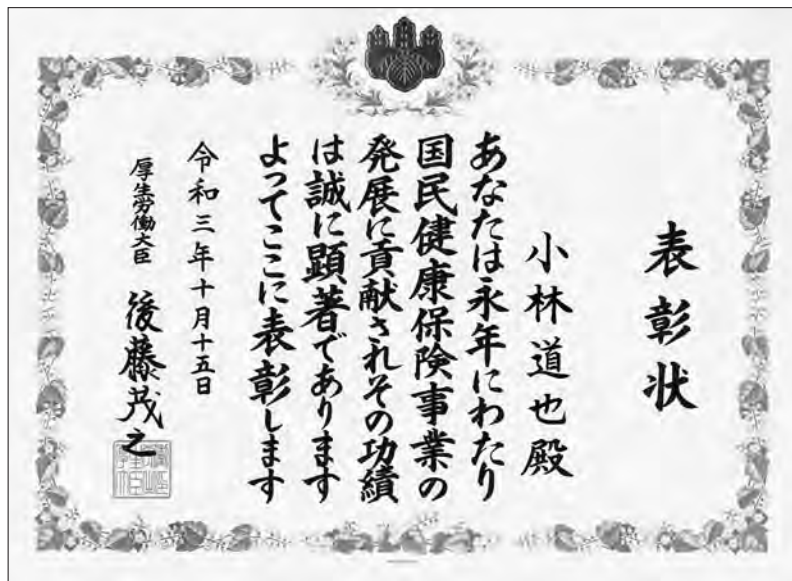 表彰状
小林道也殿
あなたは永年にわたり
国民健康保険事業の
発展に貢献されその功績
は誠に顕著であります
よってここに表彰します
令和三年十月十五日
厚生労働大臣 後藤茂之